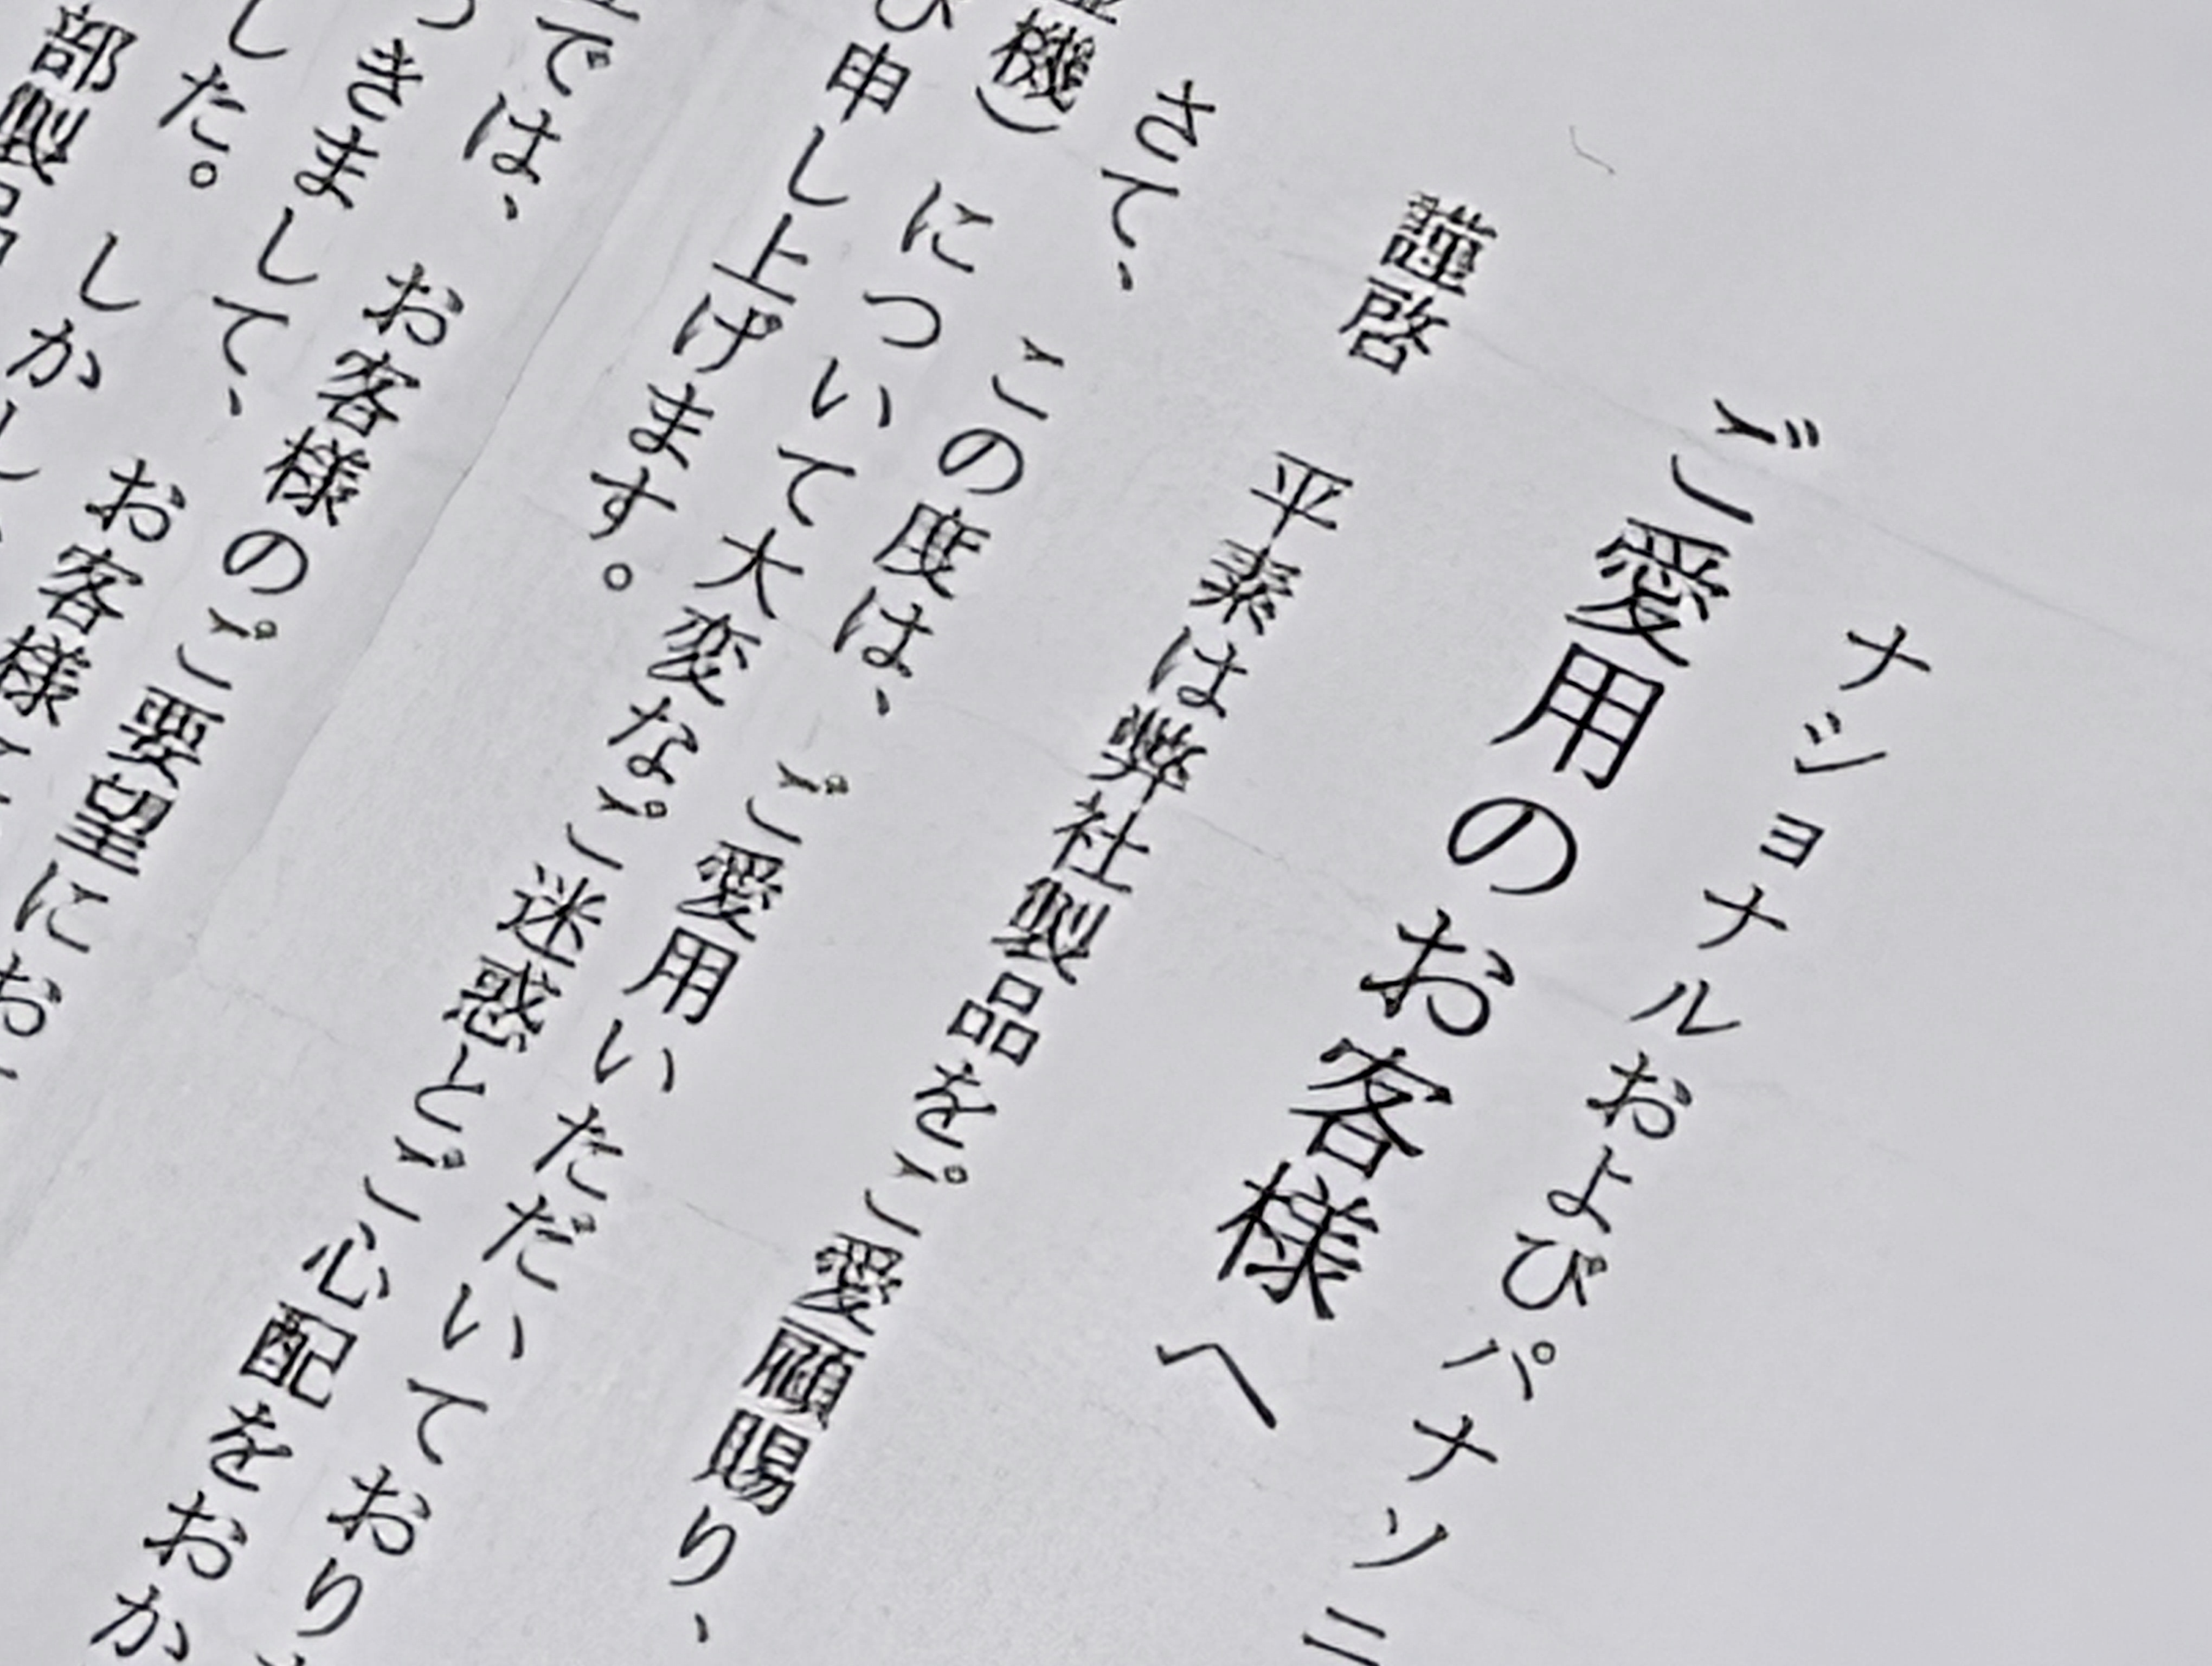 ナショナルおよびパナソニ
ご愛用のお客様へ
謹啓 平素は弊社製品をご愛顧賜り、
さて、この度は、ご愛用いただいており
機）について大変なご迷惑とご心配をおか
び申し上げます。
では、お客様のご要望にお
つきまして、お客様
した。しかし
部製品